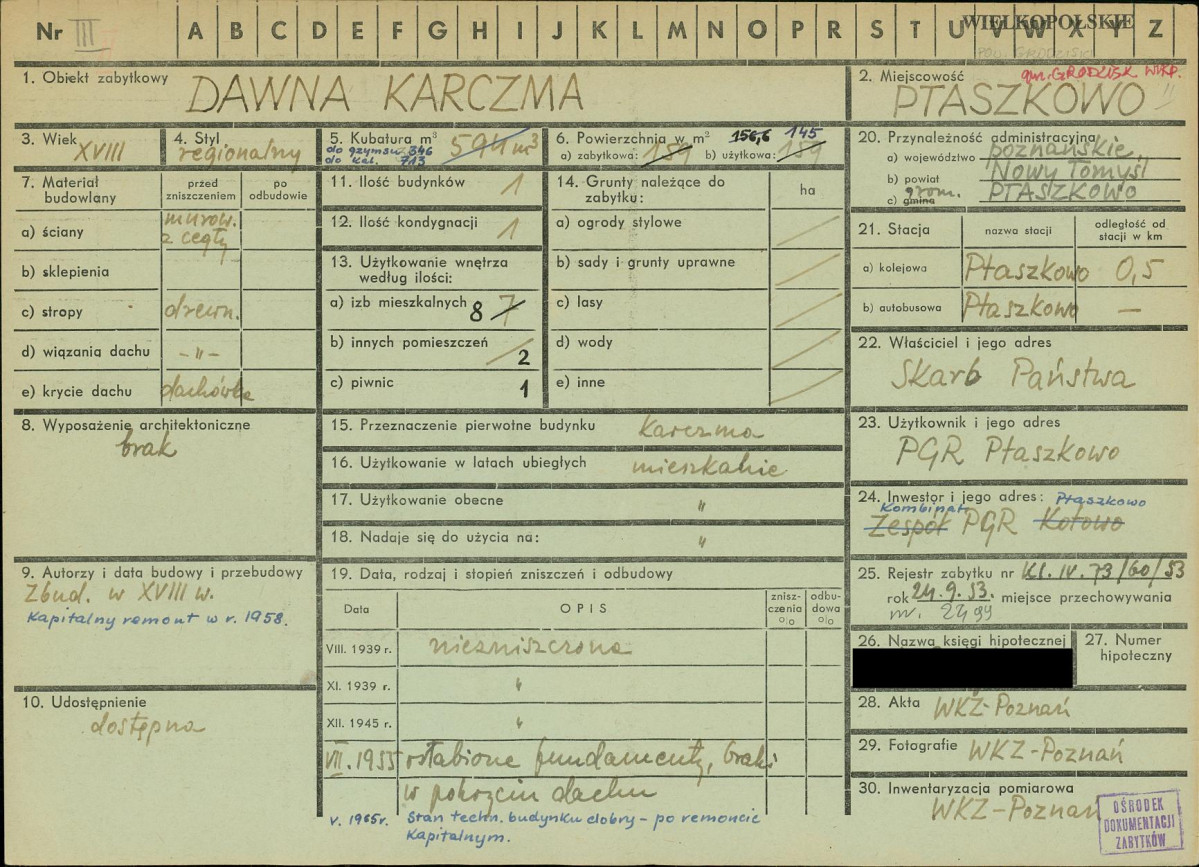 Nr III A B C D E F G H I J K L M N O P R S T U V W X Y Z
WIELKOPOLSKIE
POW. GRODZISKI
1. Obiekt zabytkowy DAWNA KARCZMA
2. Miejscowość gm. GRODZISK WLKP.
PTASZKOWO
3. Wiek XVIII
4. Styl regionalny
5. Kubatura m³ 594 m³
do gzymsu 346
do kal. 713
6. Powierzchnia w m² 156,6 145
a) zabytkowa: 159 b) użytkowa: 159
20. Przynależność administracyjna
a) województwo poznańskie
b) powiat Nowy Tomyśl
grom.
c) gmina PTASZKOWO
7. Materiał budowlany
przed zniszczeniem
po odbudowie
a) ściany murow. z cegły
b) sklepienia
c) stropy drewn.
d) wiązania dachu -"-
e) krycie dachu dachówka
11. Ilość budynków 1
12. Ilość kondygnacji 1
13. Użytkowanie wnętrza według ilości:
a) izb mieszkalnych 8 7
b) innych pomieszczeń 2
c) piwnic 1
14. Grunty należące do zabytku:
ha
a) ogrody stylowe
b) sady i grunty uprawne
c) lasy
d) wody
e) inne
21. Stacja
nazwa stacji
odległość od stacji w km
a) kolejowa Ptaszkowo 0,5
b) autobusowa Ptaszkowo —
22. Właściciel i jego adres
Skarb Państwa
8. Wyposażenie architektoniczne
brak
15. Przeznaczenie pierwotne budynku karczma
16. Użytkowanie w latach ubiegłych mieszkalnie
17. Użytkowanie obecne "
18. Nadaje się do użycia na: "
23. Użytkownik i jego adres
PGR Ptaszkowo
24. Inwestor i jego adres: Ptaszkowo
Kombinat
Zespół PGR Kotowo
9. Autorzy i data budowy i przebudowy
Zbud. w XVIII w.
Kapitalny remont w r. 1958.
10. Udostępnienie
dostępna
19. Data, rodzaj i stopień zniszczeń i odbudowy
Data
OPIS
znisz-
czenia
%
odbu-
dowa
%
VIII. 1939 r. niezniszczona
XI. 1939 r. "
XII. 1945 r. "
VII. 1955 osłabione fundamenty, braki
w pokryciu dachu
r. 1965r. Stan techn. budynku dobry - po remoncie
Kapitalnym.
25. Rejestr zabytku nr Kl. IV. 73/60/53
rok 24.9.53. miejsce przechowywania
nr. 2499
26. Nazwa księgi hipotecznej
27. Numer hipoteczny
28. Akta WKZ-Poznań
29. Fotografie WKZ-Poznań
30. Inwentaryzacja pomiarowa
WKZ-Poznań
OŚRODEK
DOKUMENTACJI
ZABYTKÓW